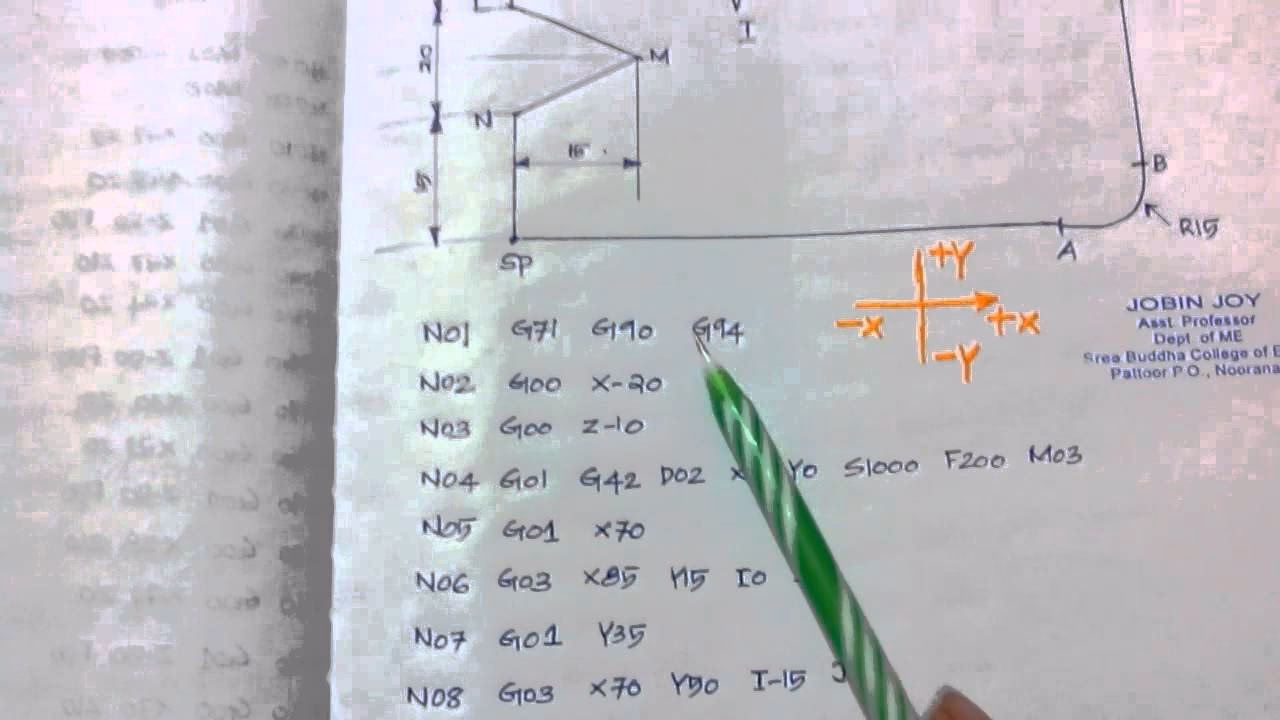 I
20
M
N
15
B
SP
A
R15
+Y
-X
+X
-Y
JOBIN JOY
Asst. Professor
Dept. of ME
Sree Buddha College of E
Pattoor P.O., Noorana
N01 G71 G90 G94
N02 G00 X-20
N03 G00 Z-10
N04 G01 G42 D02 X Y0 S1000 F200 M03
N05 G01 X70
N06 G03 X85 Y15 I0
N07 G01 Y35
N08 G03 X70 Y50 I-15 J